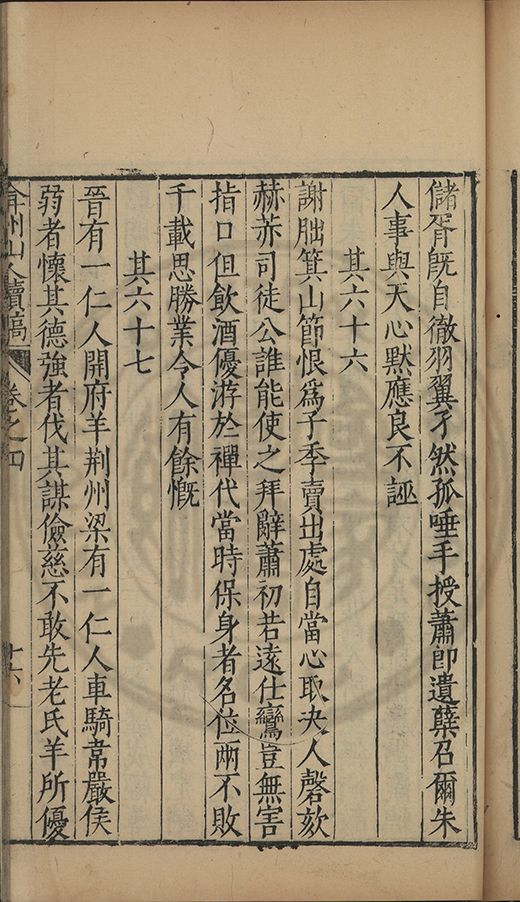 儲胥旣自徹羽翼孑然孤唾手授蕭郎遺孽召爾朱
人事與天心默應良不誣
其六十六
謝朏箕山節恨爲子季賣出處自當心取決人磬欬
赫赤司徒公誰能使之拜辭蕭初若遠仕鸞豈無害
指口但飲酒優游於禪代當時保身者名位兩不敗
千載思勝業令人有餘慨
其六十七
晉有一仁人開府羊荆州梁有一仁人車騎韋嚴侯
弱者懷其德強者伐其謀儉慈不敢先老氏羊所優
弇州山人續稿 卷之四 十六